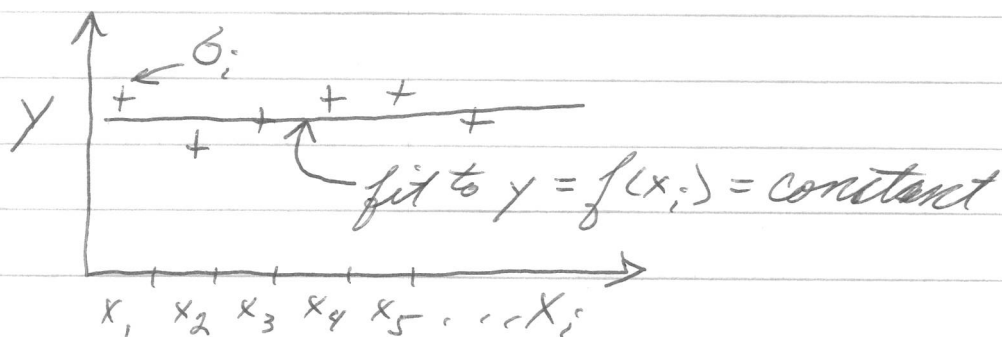 σᵢ
y
fit to y = f(xᵢ) = constant
x₁ x₂ x₃ x₄ x₅ . . . . xᵢ